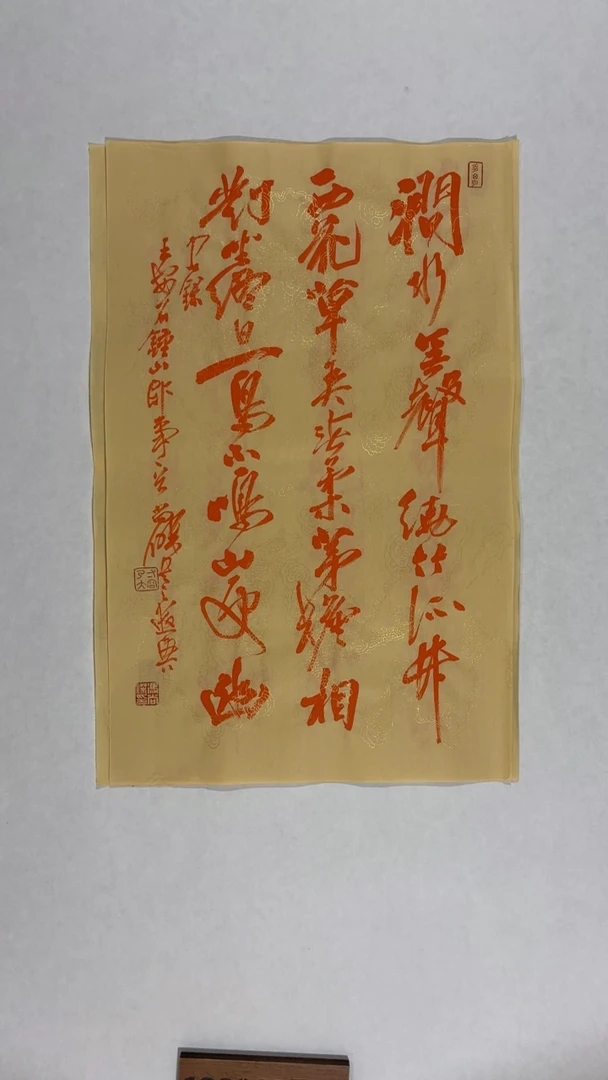 澗水無聲繞竹流竹
西花草弄春柔茅簷相
對坐終日一鳥不鳴山更幽
錄
王安石鐘山即事